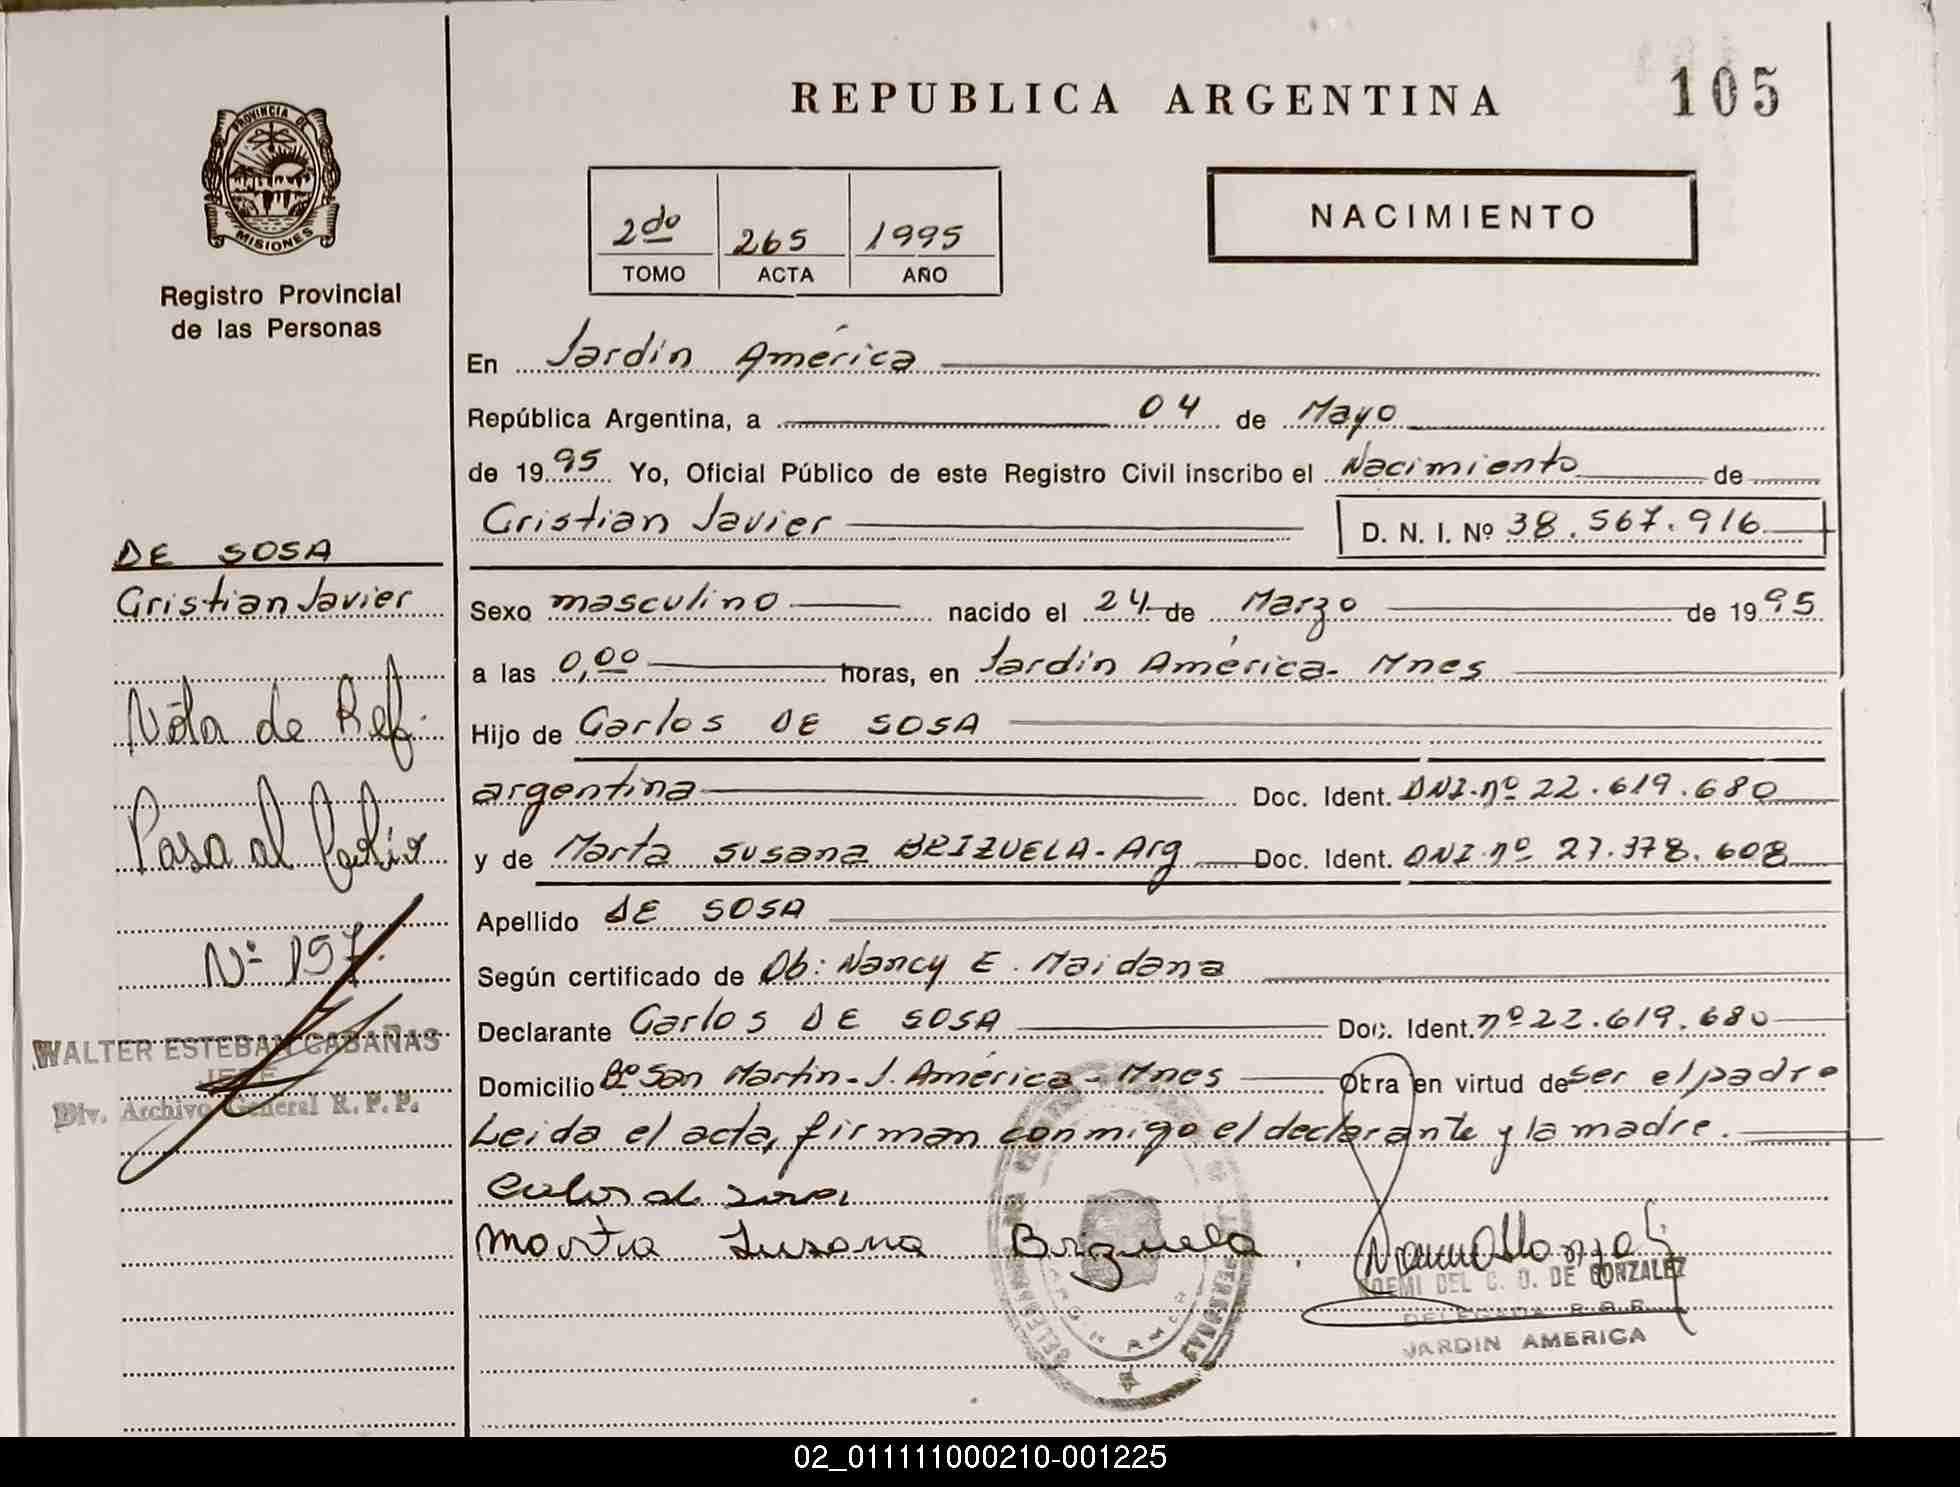 REPUBLICA ARGENTINA
105
PROVINCIA DE
MISIONES
Registro Provincial
de las Personas
2do 265 1995
TOMO ACTA AÑO
NACIMIENTO
En Jardín América
República Argentina, a 04 de Mayo
de 1995 Yo, Oficial Público de este Registro Civil inscribo el Nacimiento de
Cristian Javier D. N. I. Nº 38.567.916
DE SOSA
Cristian Javier
Nota de Ref.
Pasa al
Nº 157.
WALTER ESTEBAN CABAÑAS
JEFE
Div. Archivo General R.P.P.
Sexo masculino nacido el 24 de Marzo de 1995
a las 0,00 horas, en Jardín América- Mnes
Hijo de Carlos DE SOSA
argentina Doc. Ident. DNI-nº 22.619.680
y de Marta Susana BRIZUELA-Arg Doc. Ident. DNI-nº 27.378.608
Apellido DE SOSA
Según certificado de Ob: Nancy E. Maidana
Declarante Carlos DE SOSA Doc. Ident. nº 22.619.680
Domicilio Bº San Martín-J. América-Mnes Obra en virtud de ser el padre
Leida el acta, firman conmigo el declarante y la madre.
Carlos de Sosa
Marta Susana Brizuela
NOEMI DEL C. O. DE GONZALEZ
DELEGADA R.P.P.
JARDIN AMERICA
02_011111000210-001225